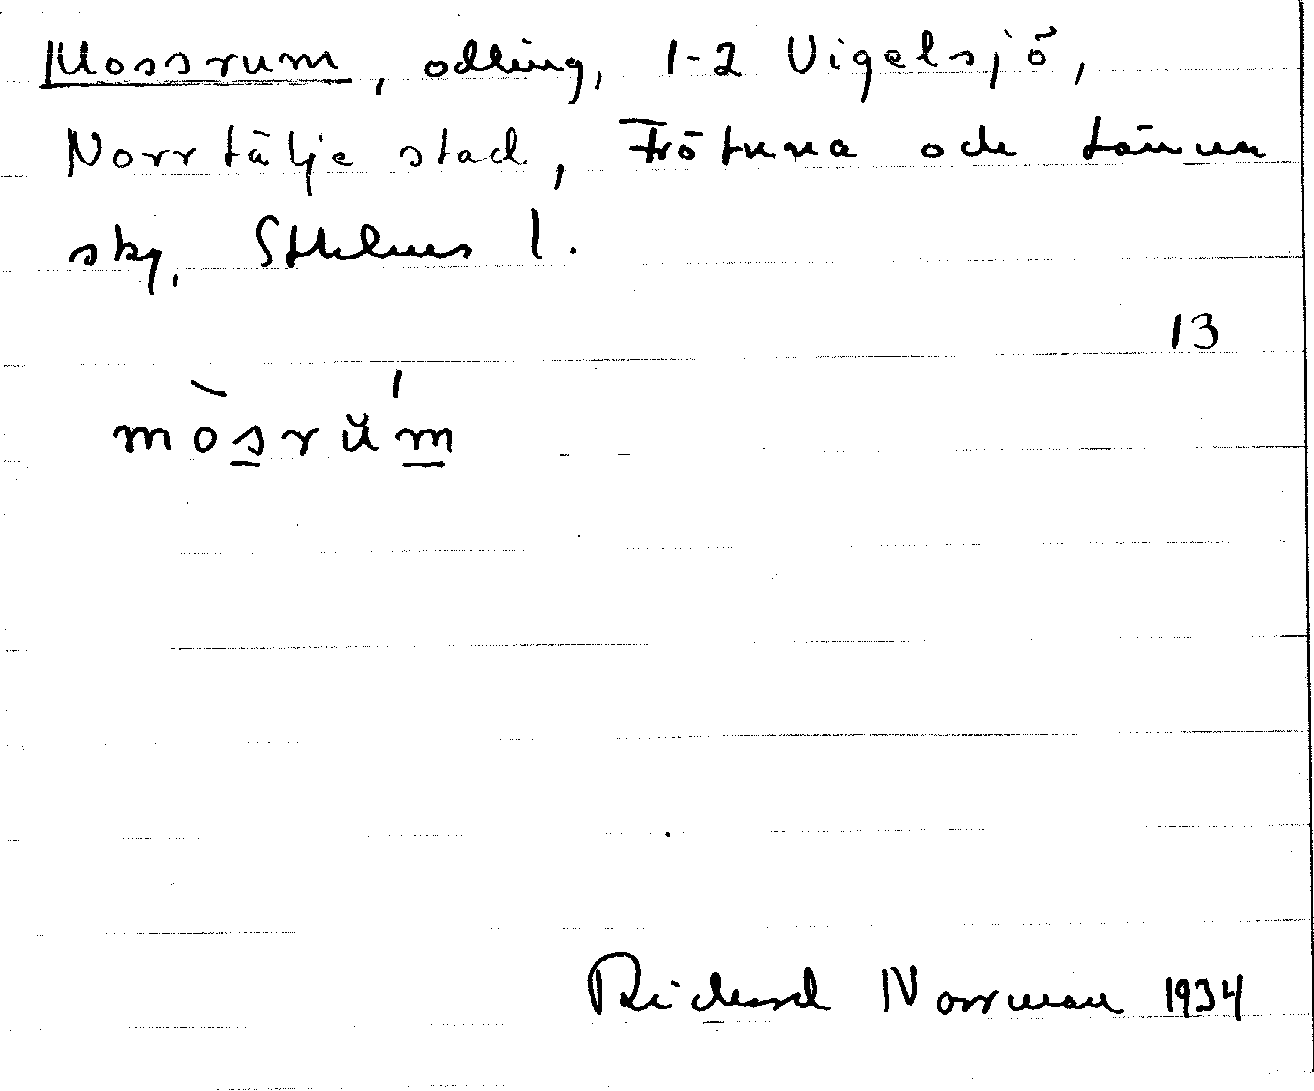 Mossrum, odling, 1-2 Vigelsjö,
Norrtälje stad, Frötuna och Länna
skg, Sthlms l.
13
mòsrŭ́m
Richard Norrman 1934